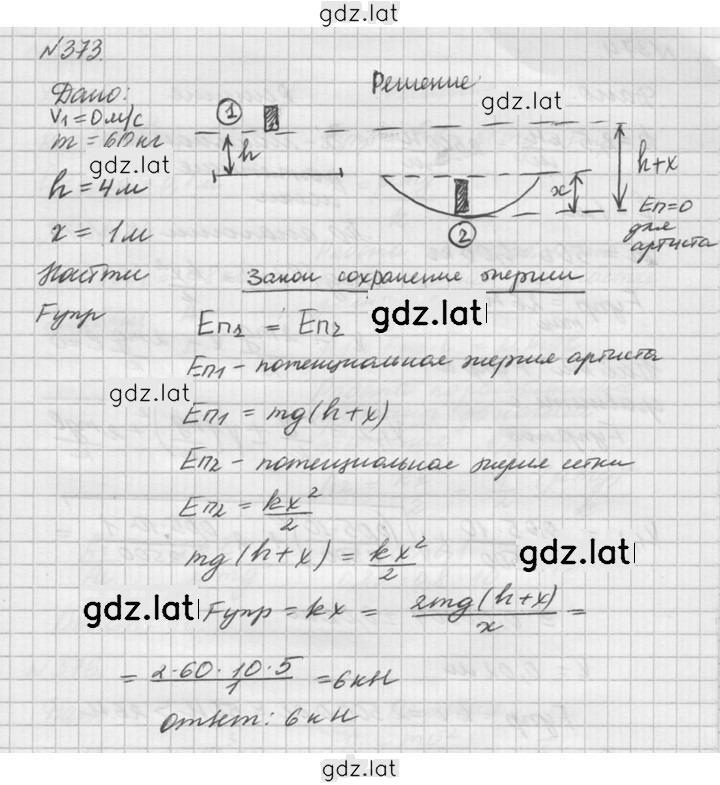 gdz.lat
№373.
Дано:
V₁ = 0 м/с
m = 60 кг
gdz.lat
h = 4 м
x = 1 м
Найти
Fупр
Решение
gdz.lat
1
h
x
h+x
2
Eп=0
для
артиста
Закон сохранение энергии
Eп₁ = Eп₂
gdz.lat
Eп₁ - потенциальное энергия артиста
gdz.lat
Eп₁ = mg(h+x)
Eп₂ - потенциальное энергия сетки
Eп₂ = kx²/2
mg(h+x) = kx²/2
gdz.lat
gdz.lat
Fупр = kx = 2mg(h+x)/x =
= 2·60·10·5/1 = 6кН
ответ: 6кН
gdz.lat